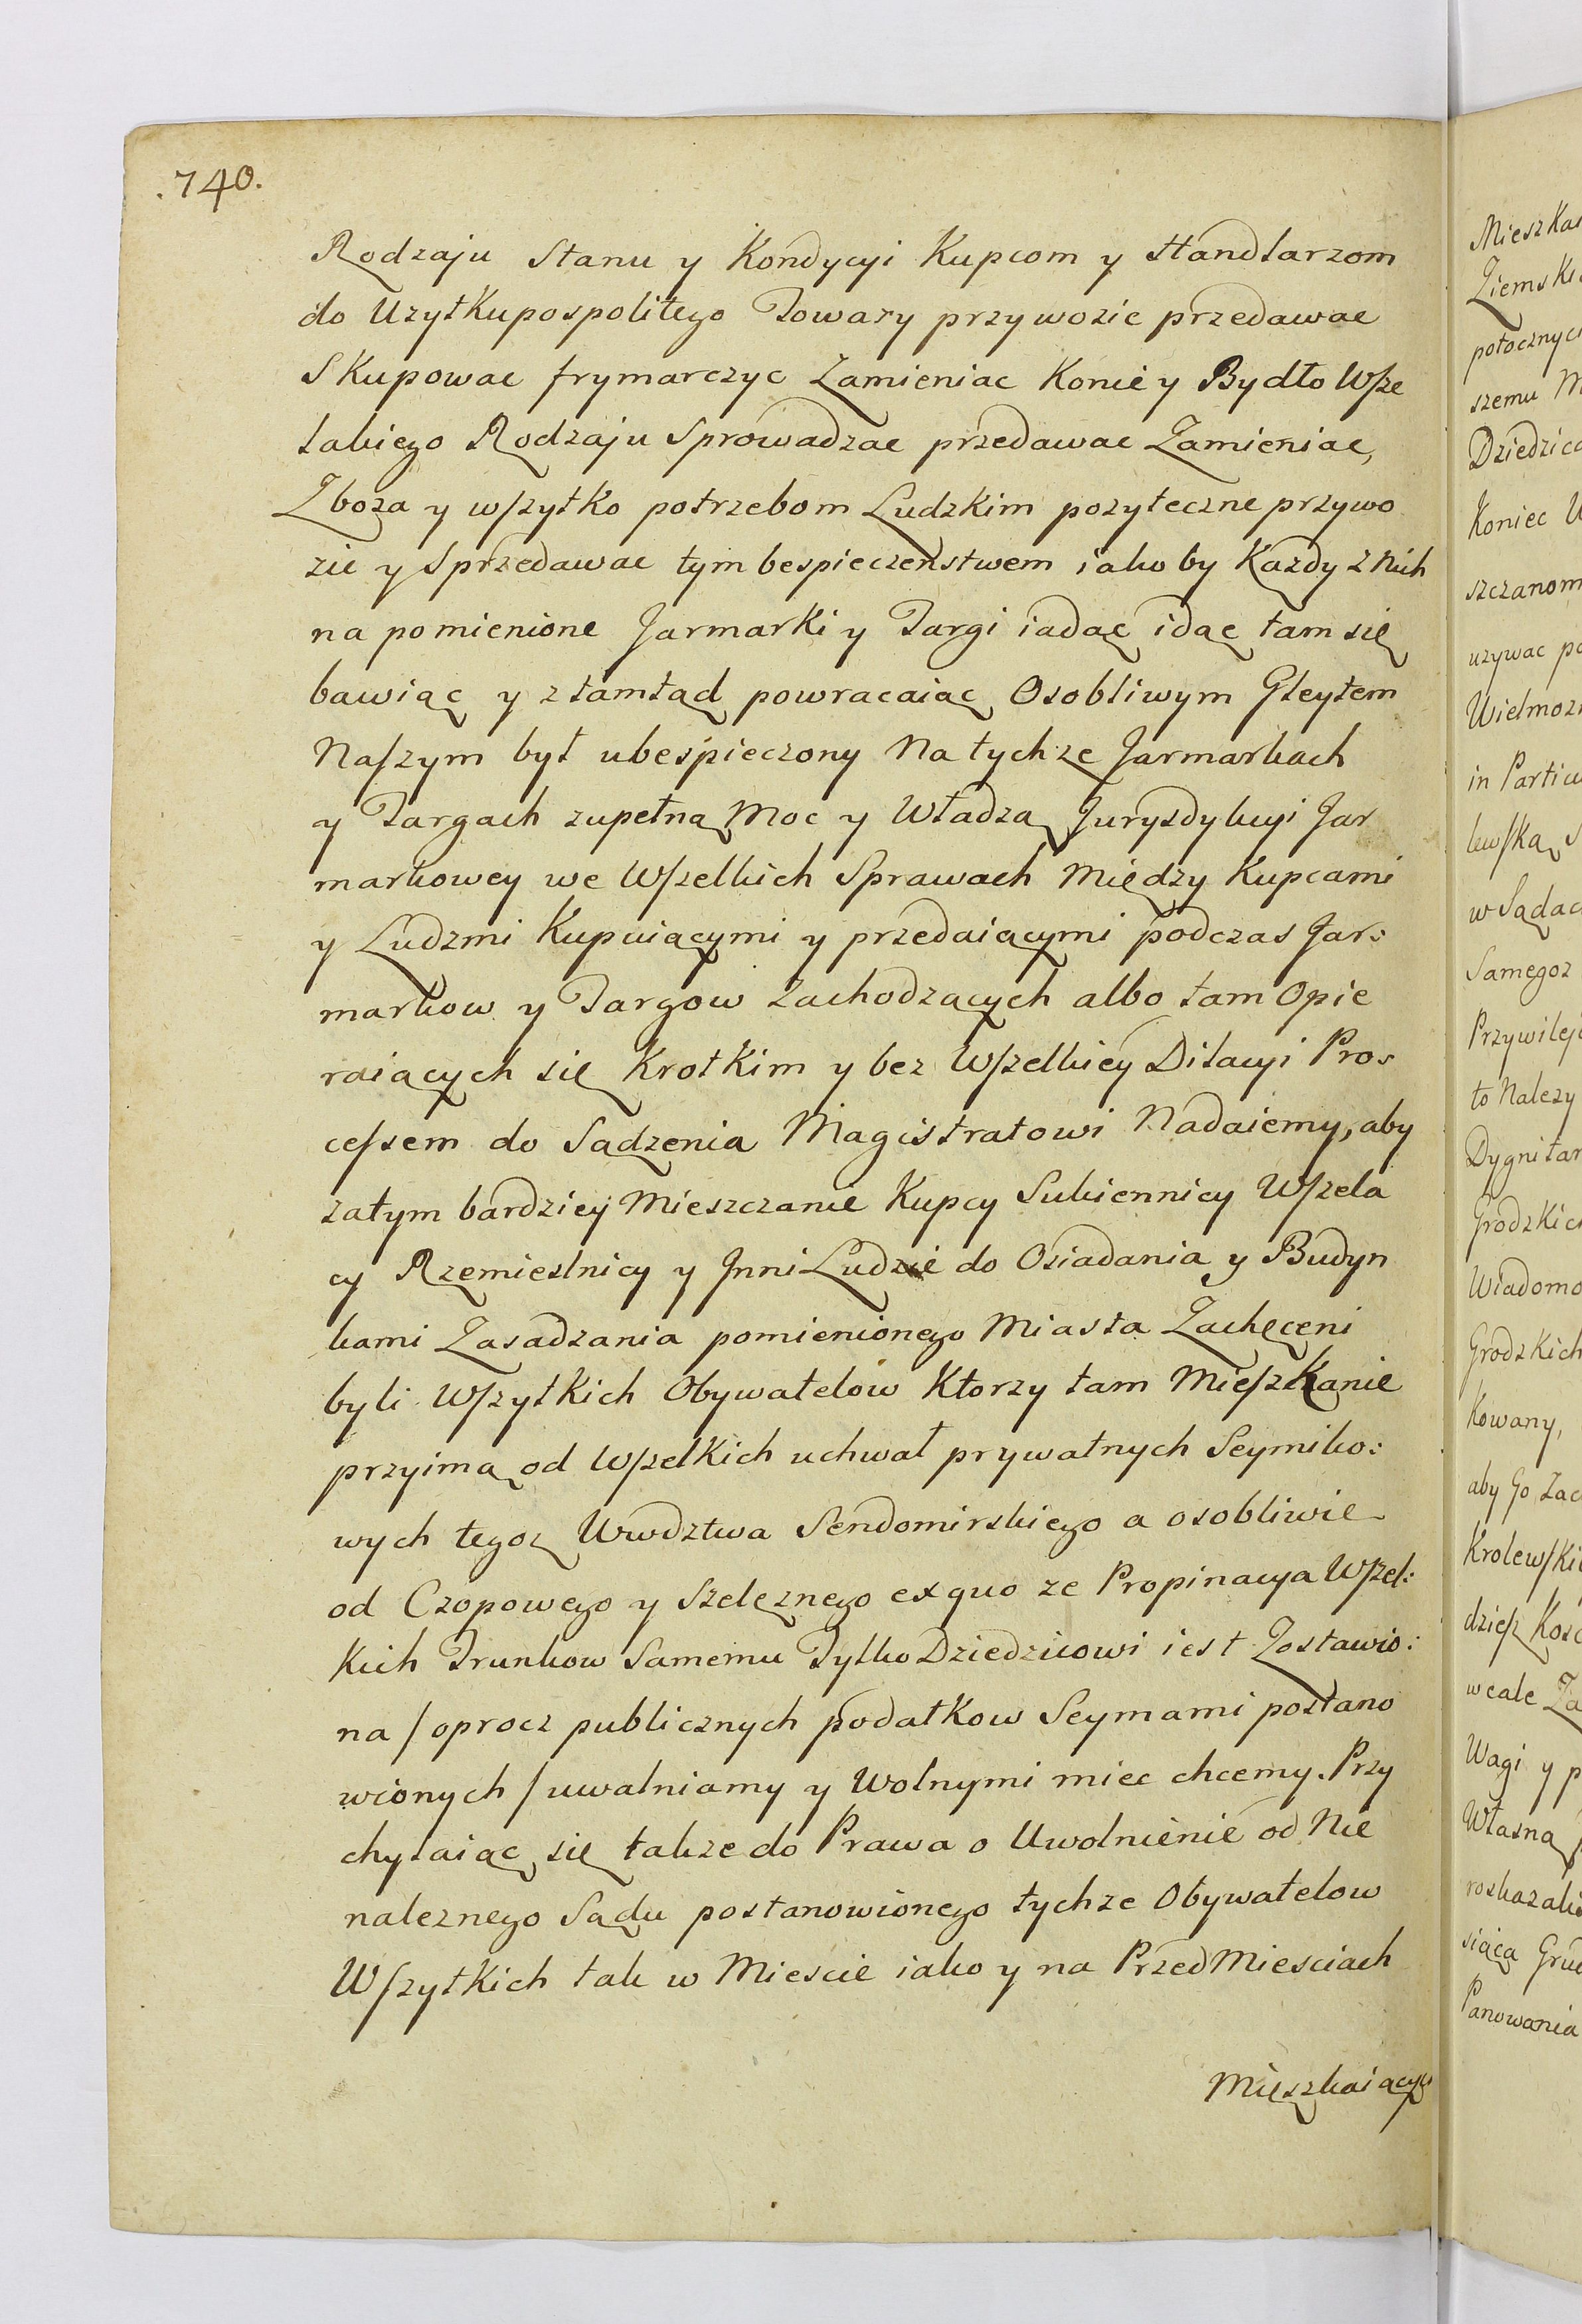 .740.
Rodzaju Stanu y Kondycyi Kupcom y Handlarzom
do Uzytku pospolitego Towary przywozic przedawac
Skupowac frymarczyc Zamieniac Konie y Bydło Wsze
lakiego Rodzaju Sprowadzac przedawac Zamieniac,
Zboza y wszytko potrzebom Ludzkim pozyteczne przywo
zic y Sprzedawac tym bespieczenstwem iako by Kazdy z Nich
na pomienione Jarmarki y Targi iadąc idąc tam się
bawiąc y ztamtąd powracaiąc Osobliwym Gleytem
Naszym był ubespieczony Na tychze Jarmarkach
y Targach zupełną Moc y Władzą Jurysdykcyi Jar
markowey we Wszelkich Sprawach Między Kupcami
y Ludzmi Kupuiącymi y przedaiącymi podczas Jar:
markow y Targow Zachodzących albo tam Opie
raiących się Krotkim y bez Wszelkiey Dilacyi Pros
cessem do Sądzenia Magistratowi Nadaiemy, aby
zatym bardziey Mieszczanie Kupcy Sukiennicy Wszela
cy Rzemieslnicy y Jnni Ludzie do Osiadania y Budyn
kami Zasadzania pomienionego Miasta Zachęceni
byli Wszytkich Obywatelow Ktorzy tam Mieszkanie
przyimą od Wszelkich uchwał prywatnych Seymiko:
wych tegoz Wwdztwa Sendomirskiego a osobliwie
od Czopowego y Szelęznego exquo ze Propinacya Wszel:
kich Trunkow Samemu Tylko Dziedzicowi iest Zostawio:
na / oprocz publicznych podatkow Seymami postano
wionych / uwalniamy y Wolnymi miec chcemy. Przy
chylaiąc się takze do Prawa o Uwolnienie od Nie
naleznego Sądu postanowionego tychze Obywatelow
Wszytkich tak w Miescie iako y na PrzedMiesciach
Mieszkaiący
Ziemski
potocznych
szemu M
Dziedzico
Koniec W
szczanom
uzywac po
Wielmozn
in Particu
lewską S
w Sądac
Samegoz
Przywilej
to Nalezy
Dygnitar
Grodzkich
Wiadomo
Grodzkich
Kowany,
aby Go Zac
Krolewski
dziesz Kosc
wcale Za
Wagi y p
Własną
roskazali
siąca Grud
Panowania